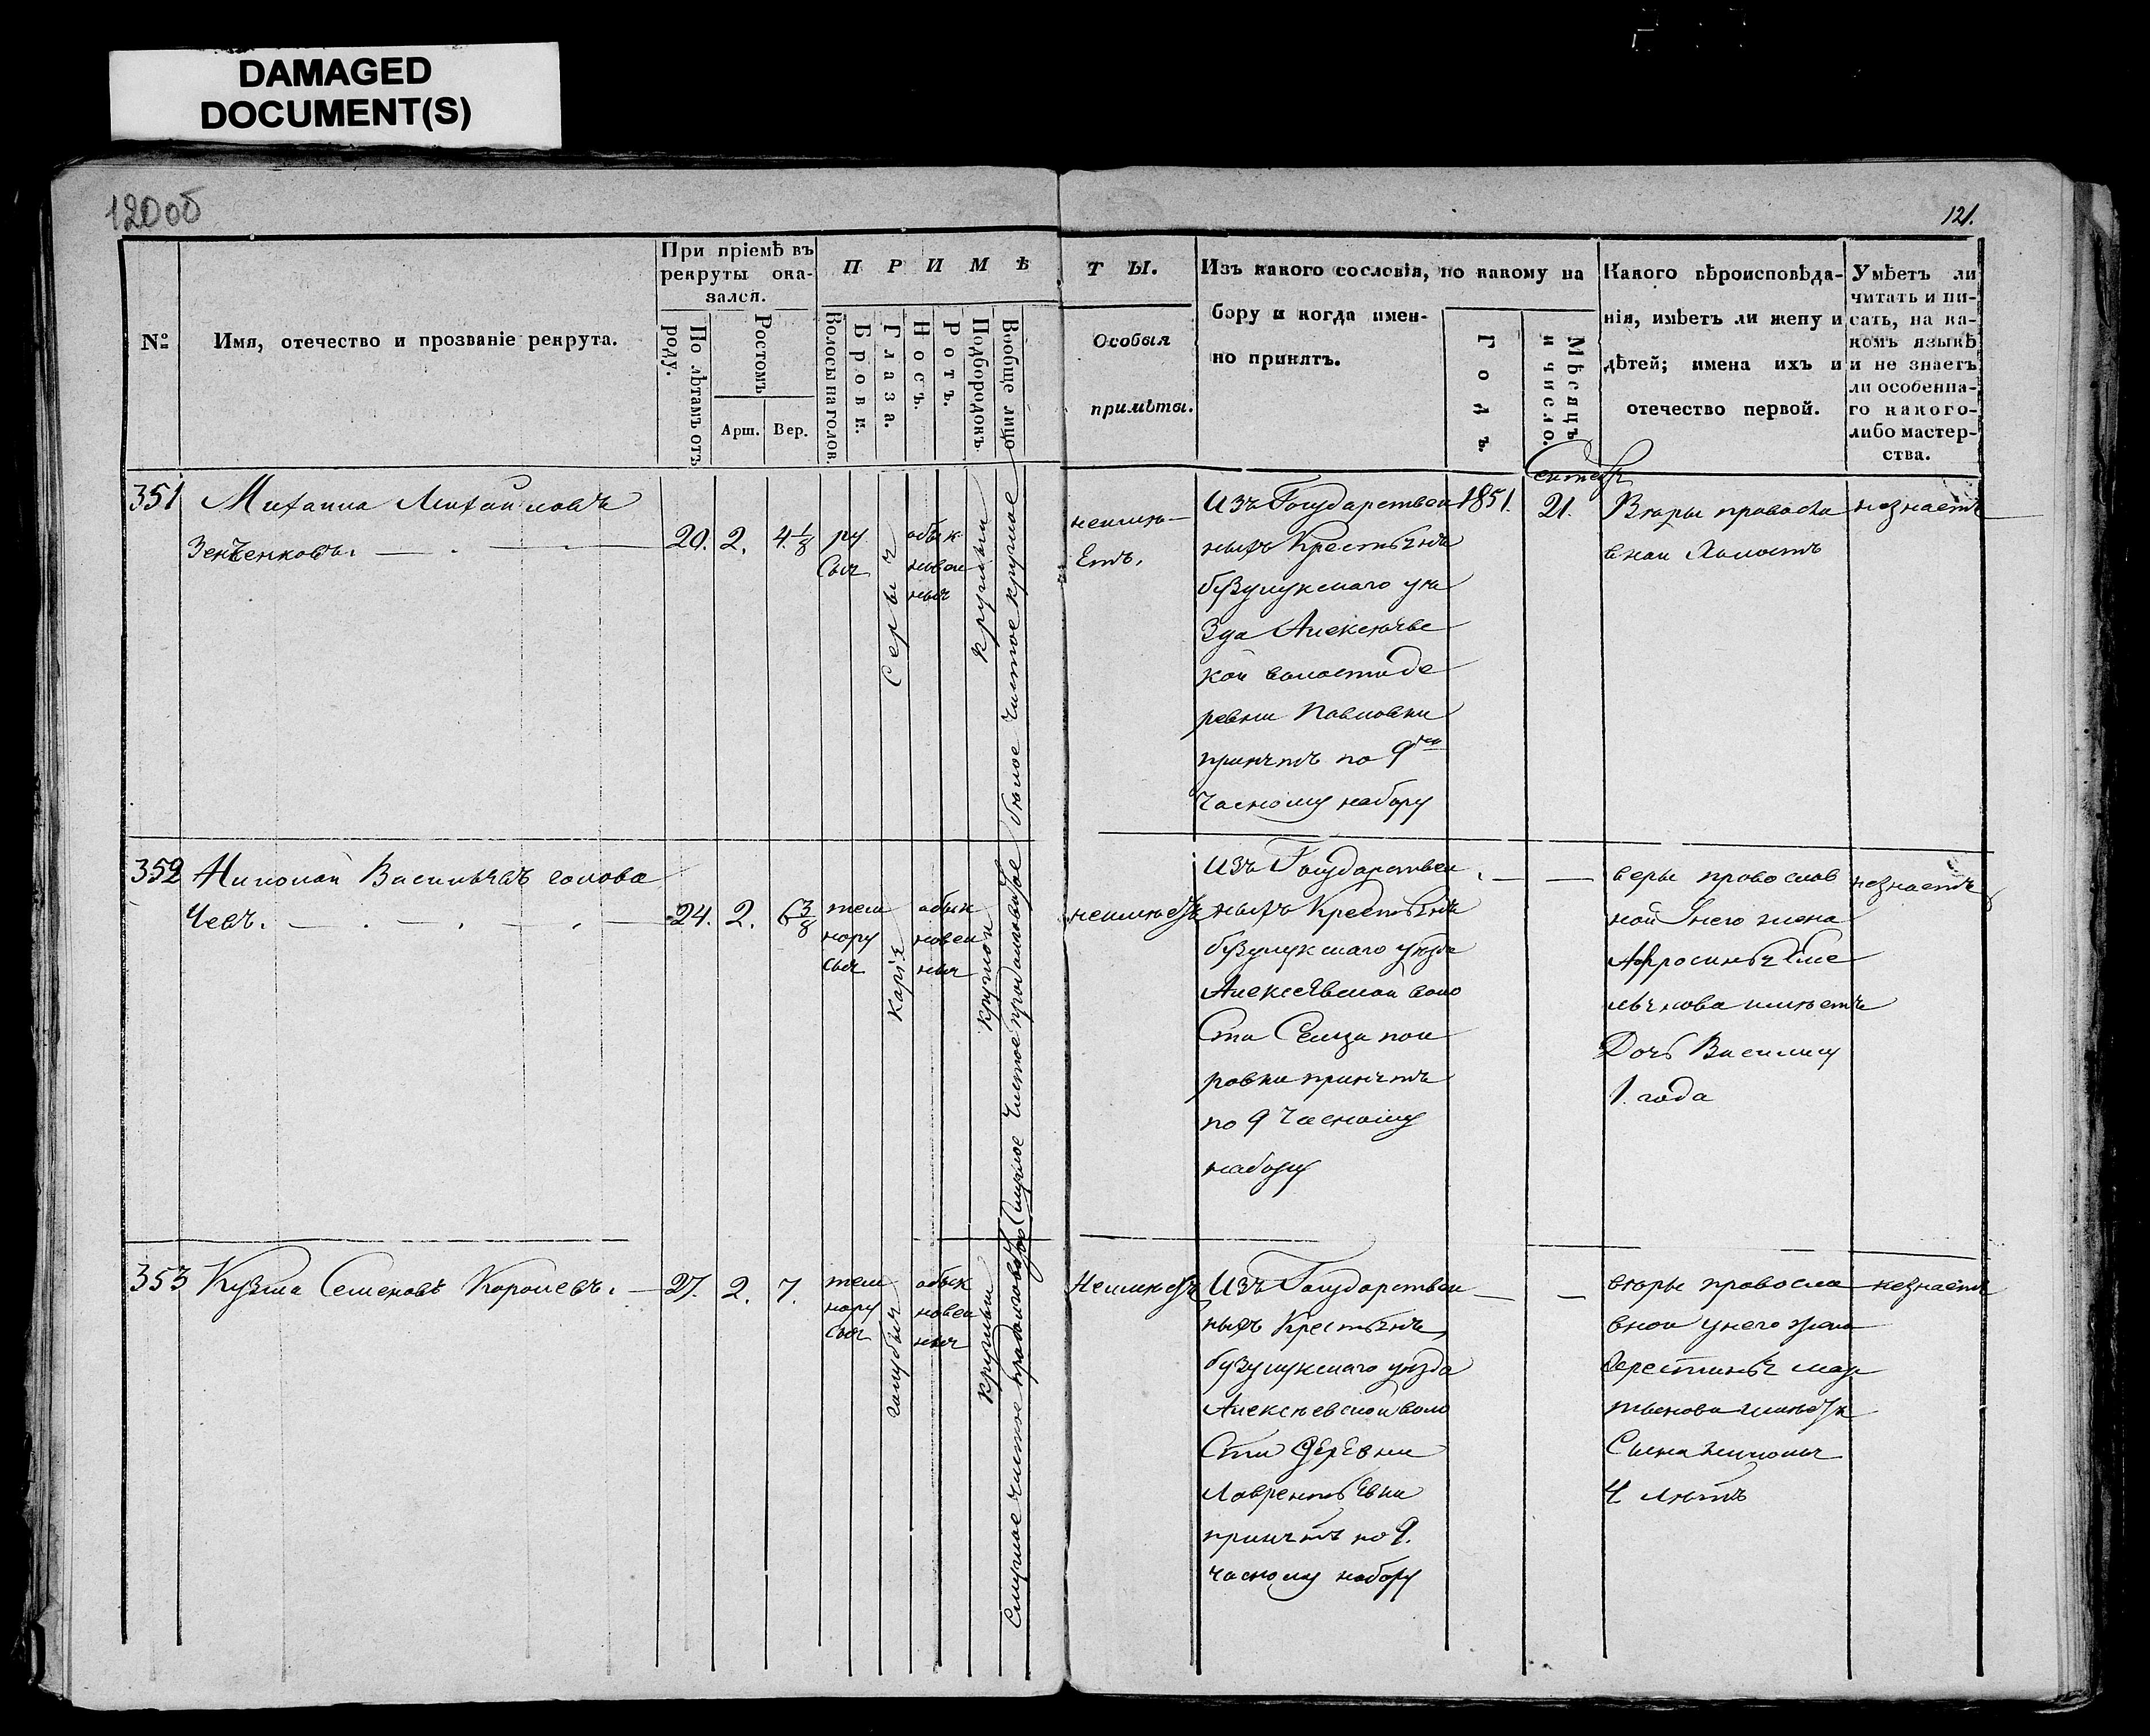 DAMAGED
DOCUMENT(S)
120об
121.
№
Имя, отечество и прозваніе рекрута.
При пріемѣ въ
рекруты ока-
зался.
По лѣтамъ отъ
роду.
Ростомъ
Арш.
Вер.
ПРИМѢ
Волосы на голов.
Брови.
Глаза.
Носъ.
Ротъ.
Подбородокъ
Вообще лицо
ТЫ.
Особыя
примѣты.
Изъ какого сословія, по какому на
бору и когда имен-
но принятъ.
Годъ.
Мѣсяцъ
и число.
Какого вѣроисповѣда-
нія, имѣетъ ли жену и
дѣтей; имена ихъ и
отечество первой.
Умѣетъ ли
читать и пи-
сать, на ка-
комъ языкѣ
и не знаетъ
ли особенна-
го какого-
либо мастер-
ства.
351
Михаила Михайловъ
Зенѣенковъ.
20.
2.
4 1/8
ру
сыя
Серыя
обык
новен
ныя
круглы
белое чистое круглое
неимѣ-
Етъ.
Изъ Государствен
ныхъ Крестьянъ
бузулукскаго уѣ
зда Алексѣевс
кой волости де
ревни Павловки
принятъ по 9
часному набору
1851.
Сентябр
21.
Вѣры правосла
вной Холостъ
незнаетъ
352
Николай Васильевъ голова
чевъ.
24.
2.
6 3/8
тем
нору
сыя
Каріе
обык
новен
ныя
круглой
Смуглое чистое продолговатое
неимѣетъ
Изъ Государствен
ныхъ Крестьянъ
бузулукскаго уѣзда
Алексѣевской воло
сти Села
ровки принятъ
по 9 Часному
набору
веры православ
ной Унего жена
Афросинья Еме
льянова имѣетъ
Дочь Василису
1. года
незнаетъ
353
Кузма Семеновъ Королевъ.
27.
2.
7.
тем
нору
сыя
голубыя
обык
новен
ныя
круглы
Смуглое чистое продолговатое
Неимѣетъ
Изъ Государствен
ныхъ Крестьянъ
бузулукскаго уѣзда
Алексѣевской воло
сти Деревни
Лаврентьевки
принятъ по 9.
часному набору
вѣры правосла
вной унего жена
мар
тьенова имѣетъ
Сына
4 лѣтъ
незнаетъ